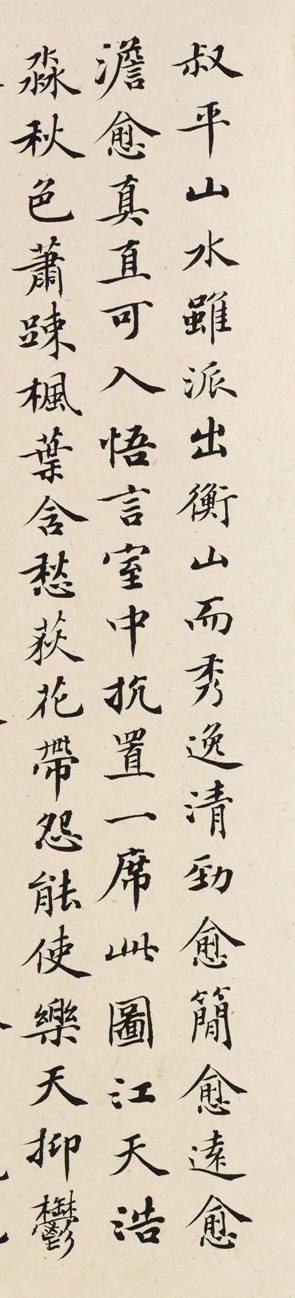 叔平山水雖派出衡山而秀逸清勁愈簡愈遠愈
澹愈真直可入悟言室中抗置一席此圖江天浩
淼秋色蕭踈楓葉含愁荻花帶怨能使樂天抑鬱